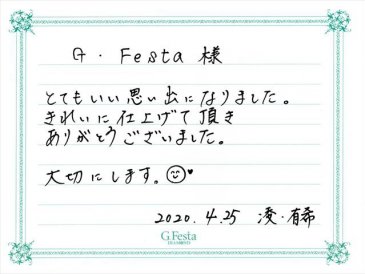 G・Festa 様
とてもいい思い出になりました。
きれいに仕上げて頂き
ありがとうございました。
大切にします。
2020.4.25 凌・有希
G.Festa
DIAMOND